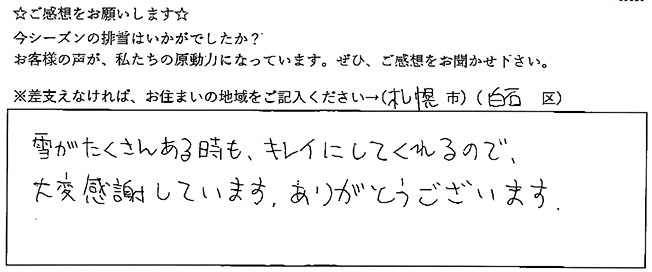 ☆ご感想をお願いします☆
今シーズンの排雪はいかがでしたか？
お客様の声が、私たちの原動力になっています。ぜひ、ご感想をお聞かせ下さい。
※差支えなければ、お住まいの地域をご記入ください→(札幌 市) (白石 区)
雪がたくさんある時も、キレイにしてくれるので、
大変感謝しています。ありがとうございます.